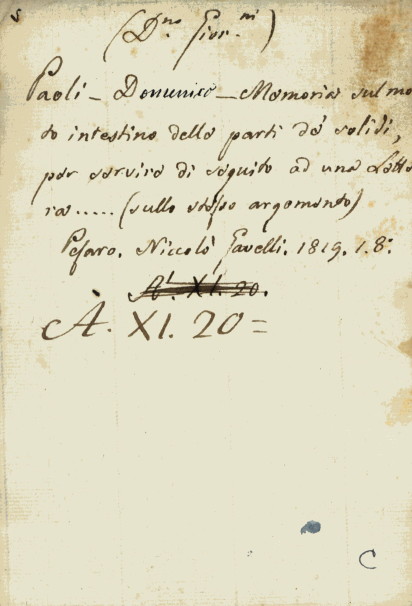 5
(D.no Gior.ni)
Paoli - Domenico - Memoria sul mo
to intestino delle parti de' solidi,
per servire di seguito ad una Lette
ra ..... (sullo stesso argomento)
Pesaro. Niccolò Gavelli. 1819. 1. 8.
A. XI. 20.
A. XI. 20 =
C